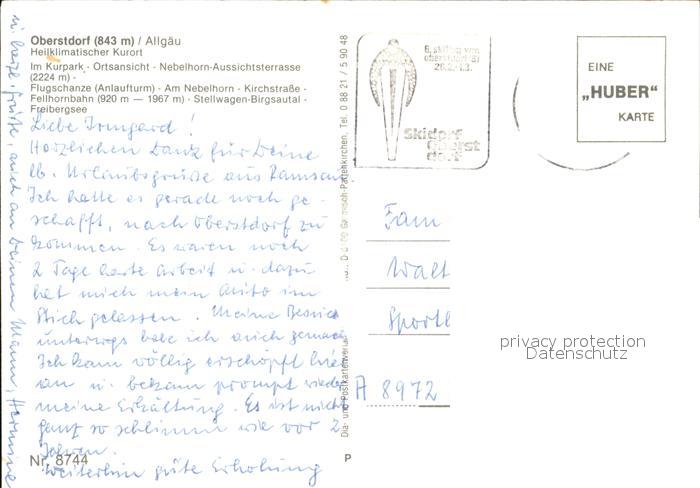 Oberstdorf (843 m) / Allgäu
Heilklimatischer Kurort
Im Kurpark - Ortsansicht - Nebelhorn-Aussichtsterrasse
(2224 m) -
Flugschanze (Anlaufturm) - Am Nebelhorn - Kirchstraße -
Fellhornbahn (920 m — 1967 m) - Stellwagen-Birgsautal -
Freibergsee
Liebe Irmgard!
Herzlichen Dank für Deine
lb. Urlaubsgrüße aus Ramsau.
Ich hatte es gerade noch ge-
schafft, nach Oberstdorf zu
kommen. Es waren noch
2 Tage harte Arbeit u. dazu
hat mich mein Auto im
Stich gelassen. Meine Besuche
unterwegs habe ich auch gemacht
Ich kam völlig erschöpft hier
an u. bekam prompt wieder
meine Erkältung. Es ist nicht
ganz so schlimm wie vor 2
Jahren.
Weiterhin gute Erholung
u. herzl. Grüße, auch an Deinen Mann, Hermine
Nr. 8744
P
Dia- und Postkartenverlag
Garmisch-Partenkirchen, Tel. 0 88 21 / 5 90 48
6. skiflug wm
oberstdorf 81
26.2.-1.3.
Skidorf
Oberst
dorf
EINE
„HUBER"
KARTE
Fam
Walt
Sportl
A 8972
privacy protection
Datenschutz